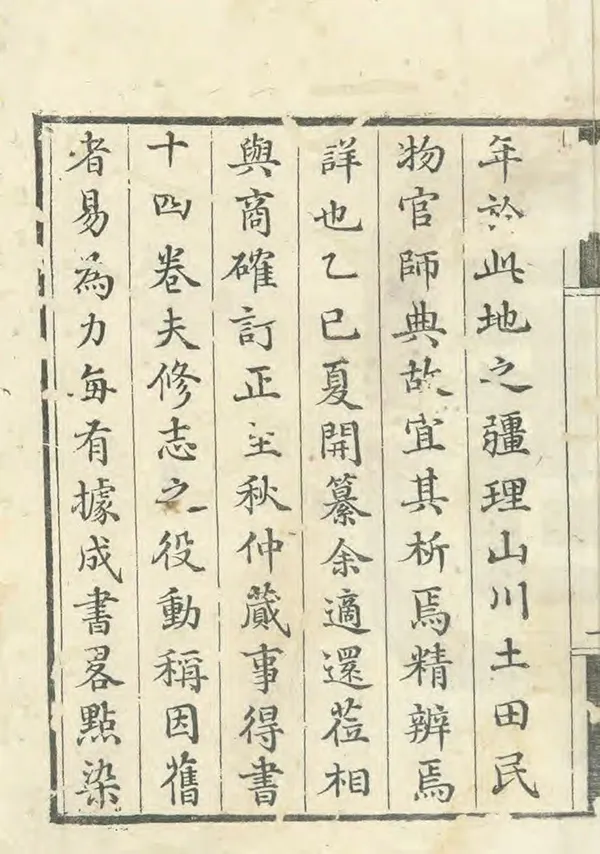 年於此地之疆理山川土田民
物官師典故宜其析焉精辨焉
詳也乙巳夏開纂余適還蒞相
與商確訂正至秋仲蕆事得書
十四卷夫修志之役動稱因舊
者易為力每有據成書畧點染